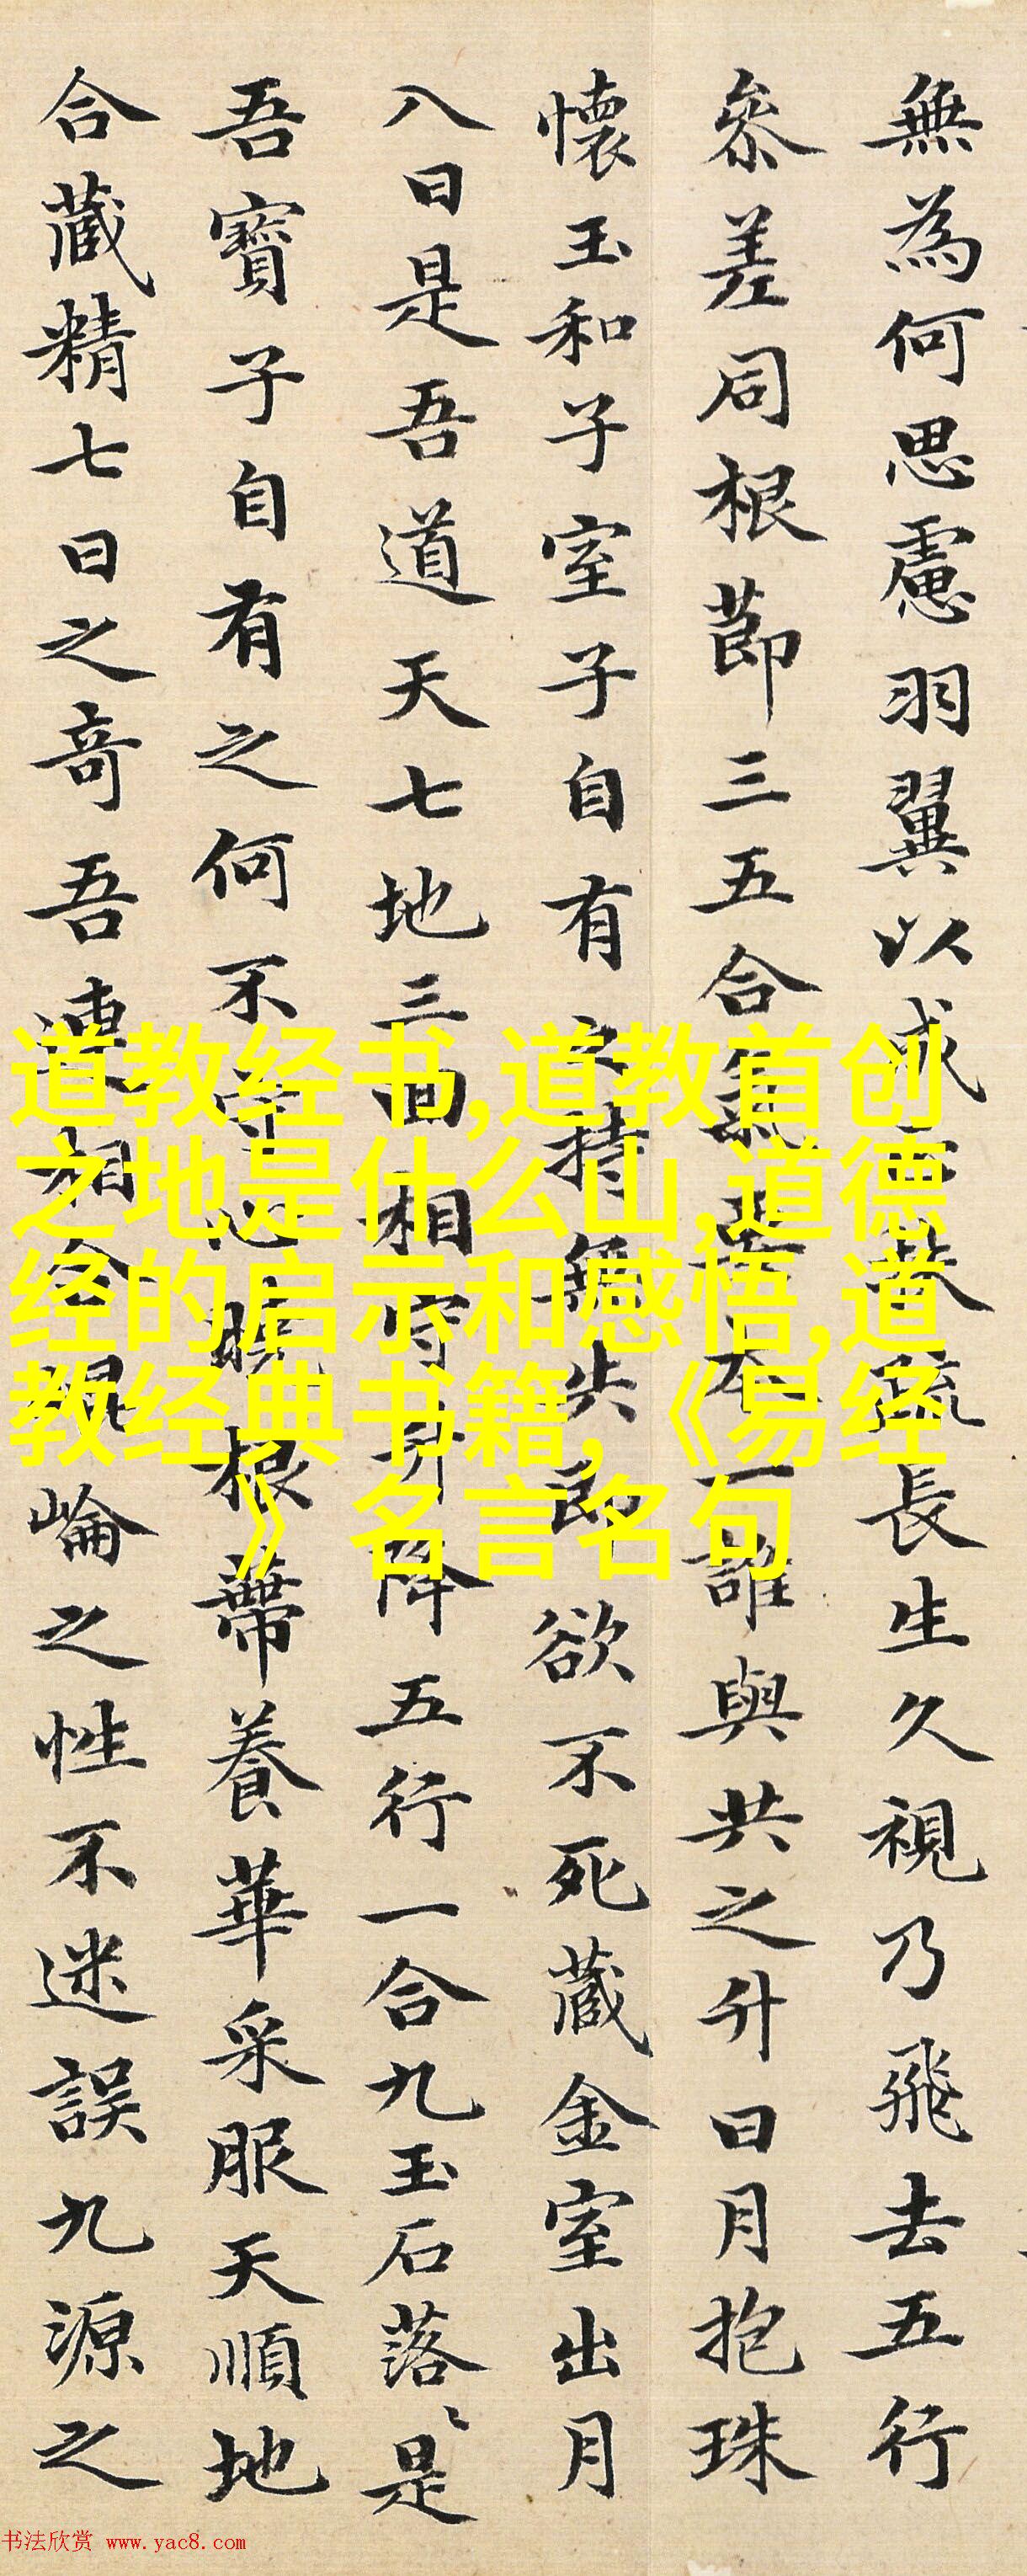 無為何思慮羽翼以成長生久視乃飛去五行
參差同根莭三五合氣不誰與共之升日月抱珠
懷玉和子室子自有之持無失即欲不死藏金室出月
八日是吾道天七地三回相守升降五行一合九玉石落〻是
吾寶子自有之何不守心曉根蔕養華采服天順地
合藏精七日之奇吾連相合崐崘之性不迷誤九源之
道教经书,道教首创
之地是什么山,道德
经的启示和感悟,道
教经典书籍,《易经
》名言名句
书法欣赏 www.yac8.com